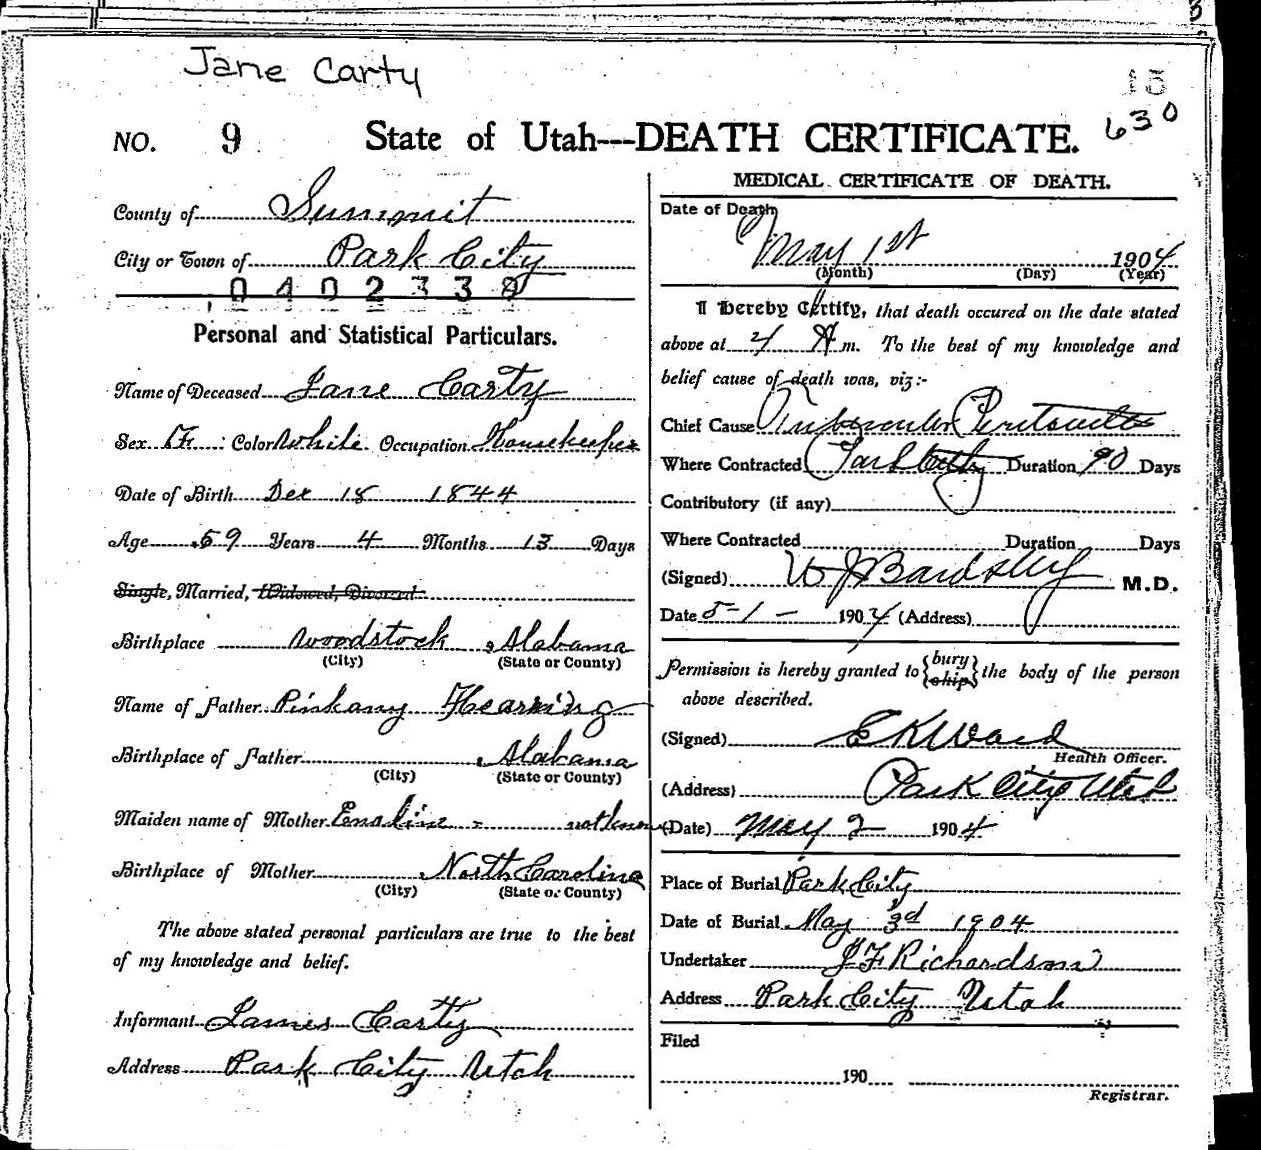 Jane Carty
630
NO. 9 State of Utah---DEATH CERTIFICATE.
County of Summit
City or Town of Park City
0402339
Personal and Statistical Particulars.
Name of Deceased Jane Carty
Sex F. : Color White Occupation Housekeeper
Date of Birth Dec 18 1844
Age 59 Years 4 Months 13 Days
Single, Married, Widowed, Divorced
Birthplace Woodstock, Alabama
(City) (State or County)
Name of Father Pinkany Hearring
Birthplace of Father Alabama
(City) (State or County)
Maiden name of Mother Emaline - not known
Birthplace of Mother North Carolina
(City) (State or County)
The above stated personal particulars are true to the best
of my knowledge and belief.
Informant James Carty
Address Park City Utah
MEDICAL CERTIFICATE OF DEATH.
Date of Death
May 1st 1904
(Month) (Day) (Year)
I Hereby Certify, that death occured on the date stated
above at 4 A m. To the best of my knowledge and
belief cause of death was, viz:-
Chief Cause Tubercular Peritonitis
Where Contracted Park City Duration 90 Days
Contributory (if any)
Where Contracted Duration Days
(Signed) W J Bardsley M.D.
Date 5-1- 1904 (Address)
Permission is hereby granted to {bury ship} the body of the person
above described.
(Signed) E K Ward
Health Officer.
(Address) Park City Utah
(Date) May 2 1904
Place of Burial Park City
Date of Burial May 3rd 1904
Undertaker J F Richardson
Address Park City Utah
Filed
190
Registrar.